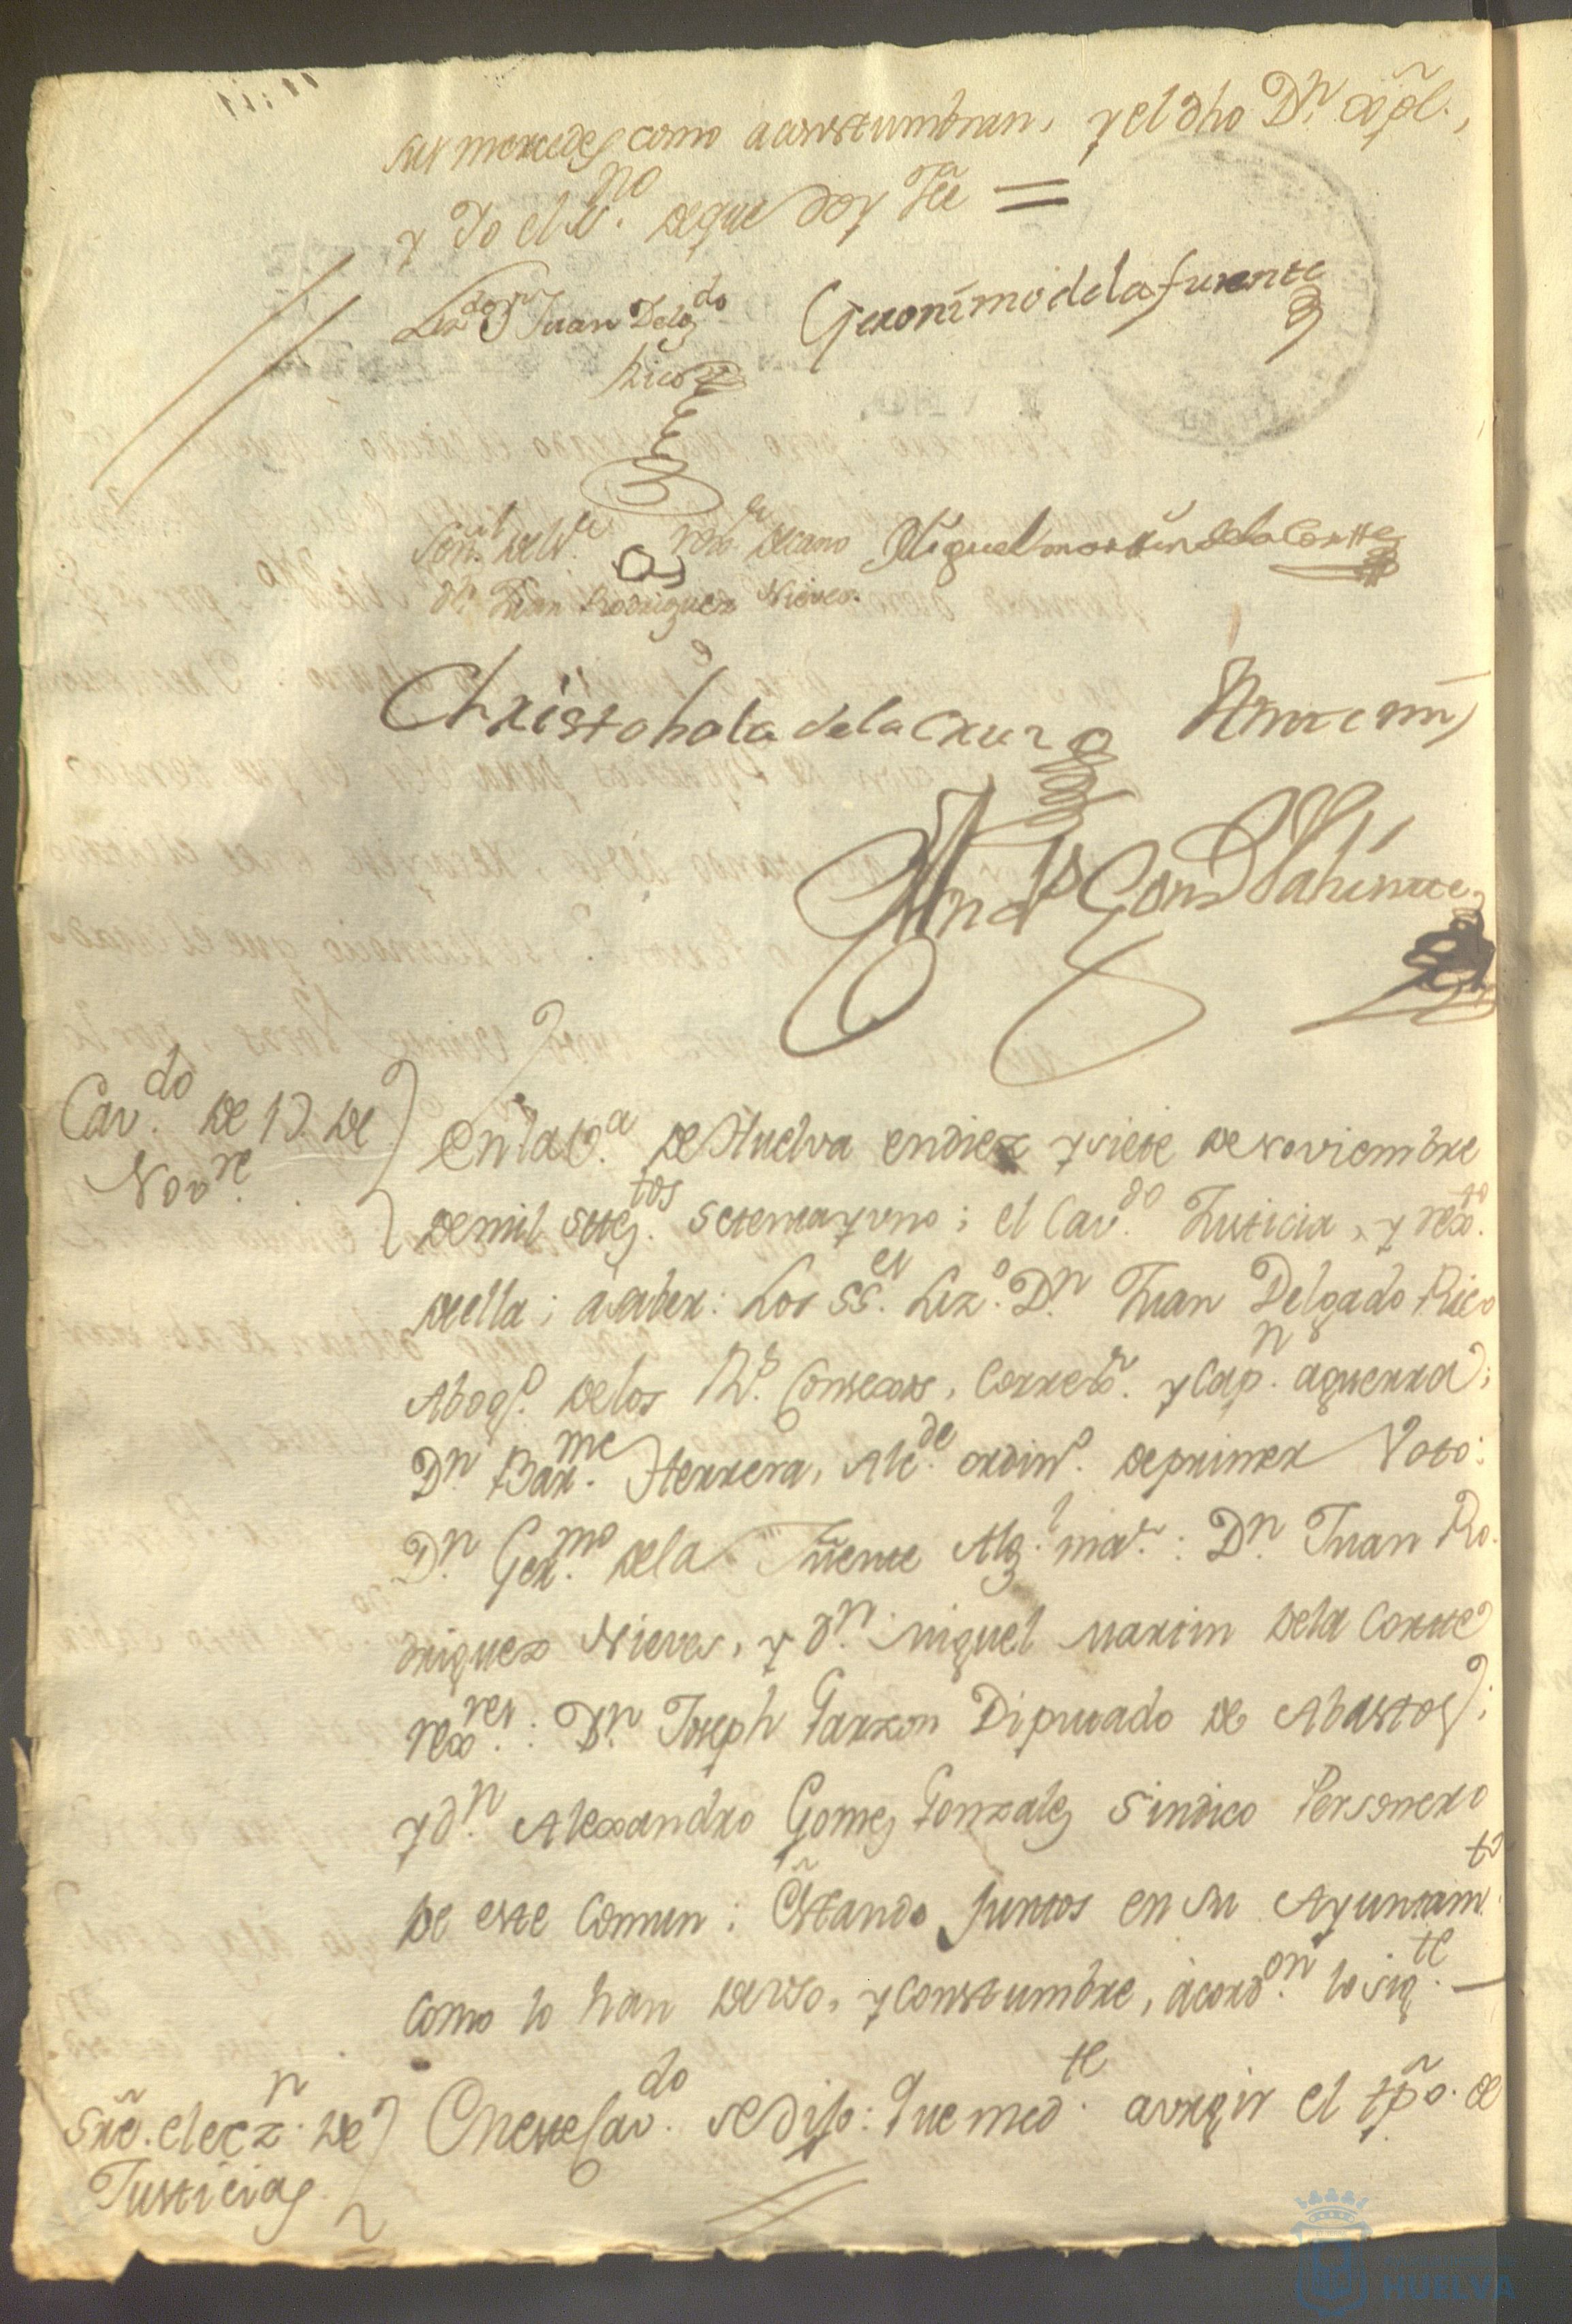 sus mercedes como acostumbran, y el dho Dn. Xpl.,
y Yo el ssno. de que doy fee =
Lizdo. Dn Juan Delgdo Geronimo dela fuente
Rico
Señal del Sr. rexor decano Miguel martin dela Cortte
Dn. Juan Rodriguez Nieves.
Christobal a dela Cruz Ante mi
Cavdo. de 17 de
Novre.
En la va. de Huelva en diez y siete de Noviembre
de mil settestos. setenta y uno; el Cavdo. Justicia, y rexto.
de ella; a saver: Los SSes. Lizo. Dn. Juan Delgado Rico
Abogo. de los Rs. Consexos, Correxr. y Capn. a guerra;
Dn. Barme. Herrera, Alcde. ordino. de primer Voto:
Dn. Germo. de la Fuente Algl. mar.: Dn. Juan Ro.
driguez Nieves, y dn. Miguel Martin de la Cortte
rexres.: Dn. Joseph Garzon Diputado de Abastos;
y dn. Alexandro Gomez Gonzalez Sindico Personero
de este Comun: Estando juntos en su Ayuntamto.
como lo han de uso, y constumbre, acordon. lo sigte. —
Sre. eleczn. de
Justicias
En este Cavdo. se dijo: Que medte. a urgir el tpo. de
HUELVA